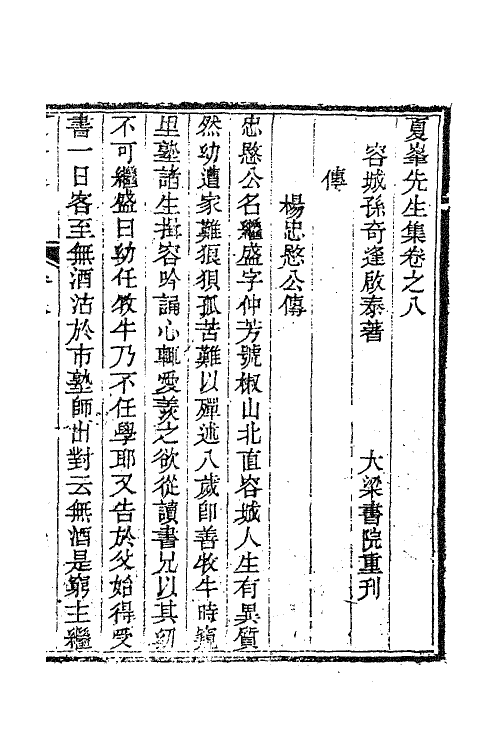 夏峯先生集卷之八
容城孫奇逢啟泰著　大梁書院重刊
傳
楊忠愍公傳
忠愍公名繼盛字仲芳號椒山北直容城人生有異質
然幼遭家難狼狽孤苦難以殫述八歲卽善牧牛時窺
里塾諸生揖容吟誦心輒愛羨之欲從讀書兄以其幼
不可繼盛曰幼任牧牛乃不任學耶又告於父始得受
書一日客至無酒沽於市塾師出對云無酒是窮主繼